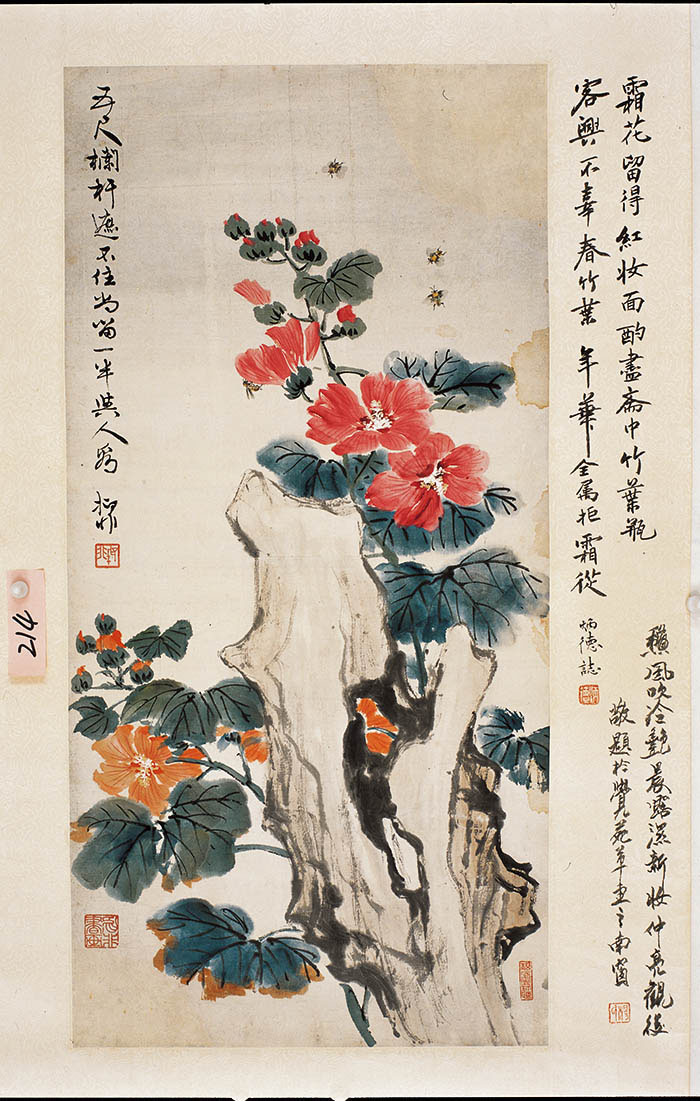 霜花留得紅妝面酌盡齋中竹葉瓶
客興不辜春竹葉年華全属拒霜從
炳德誌
風吹冷艷晨露濕新妝仲亮觀後
敬題於覺苑草堂之南窗
五尺欄杆遮不住尚留一半與人看
214